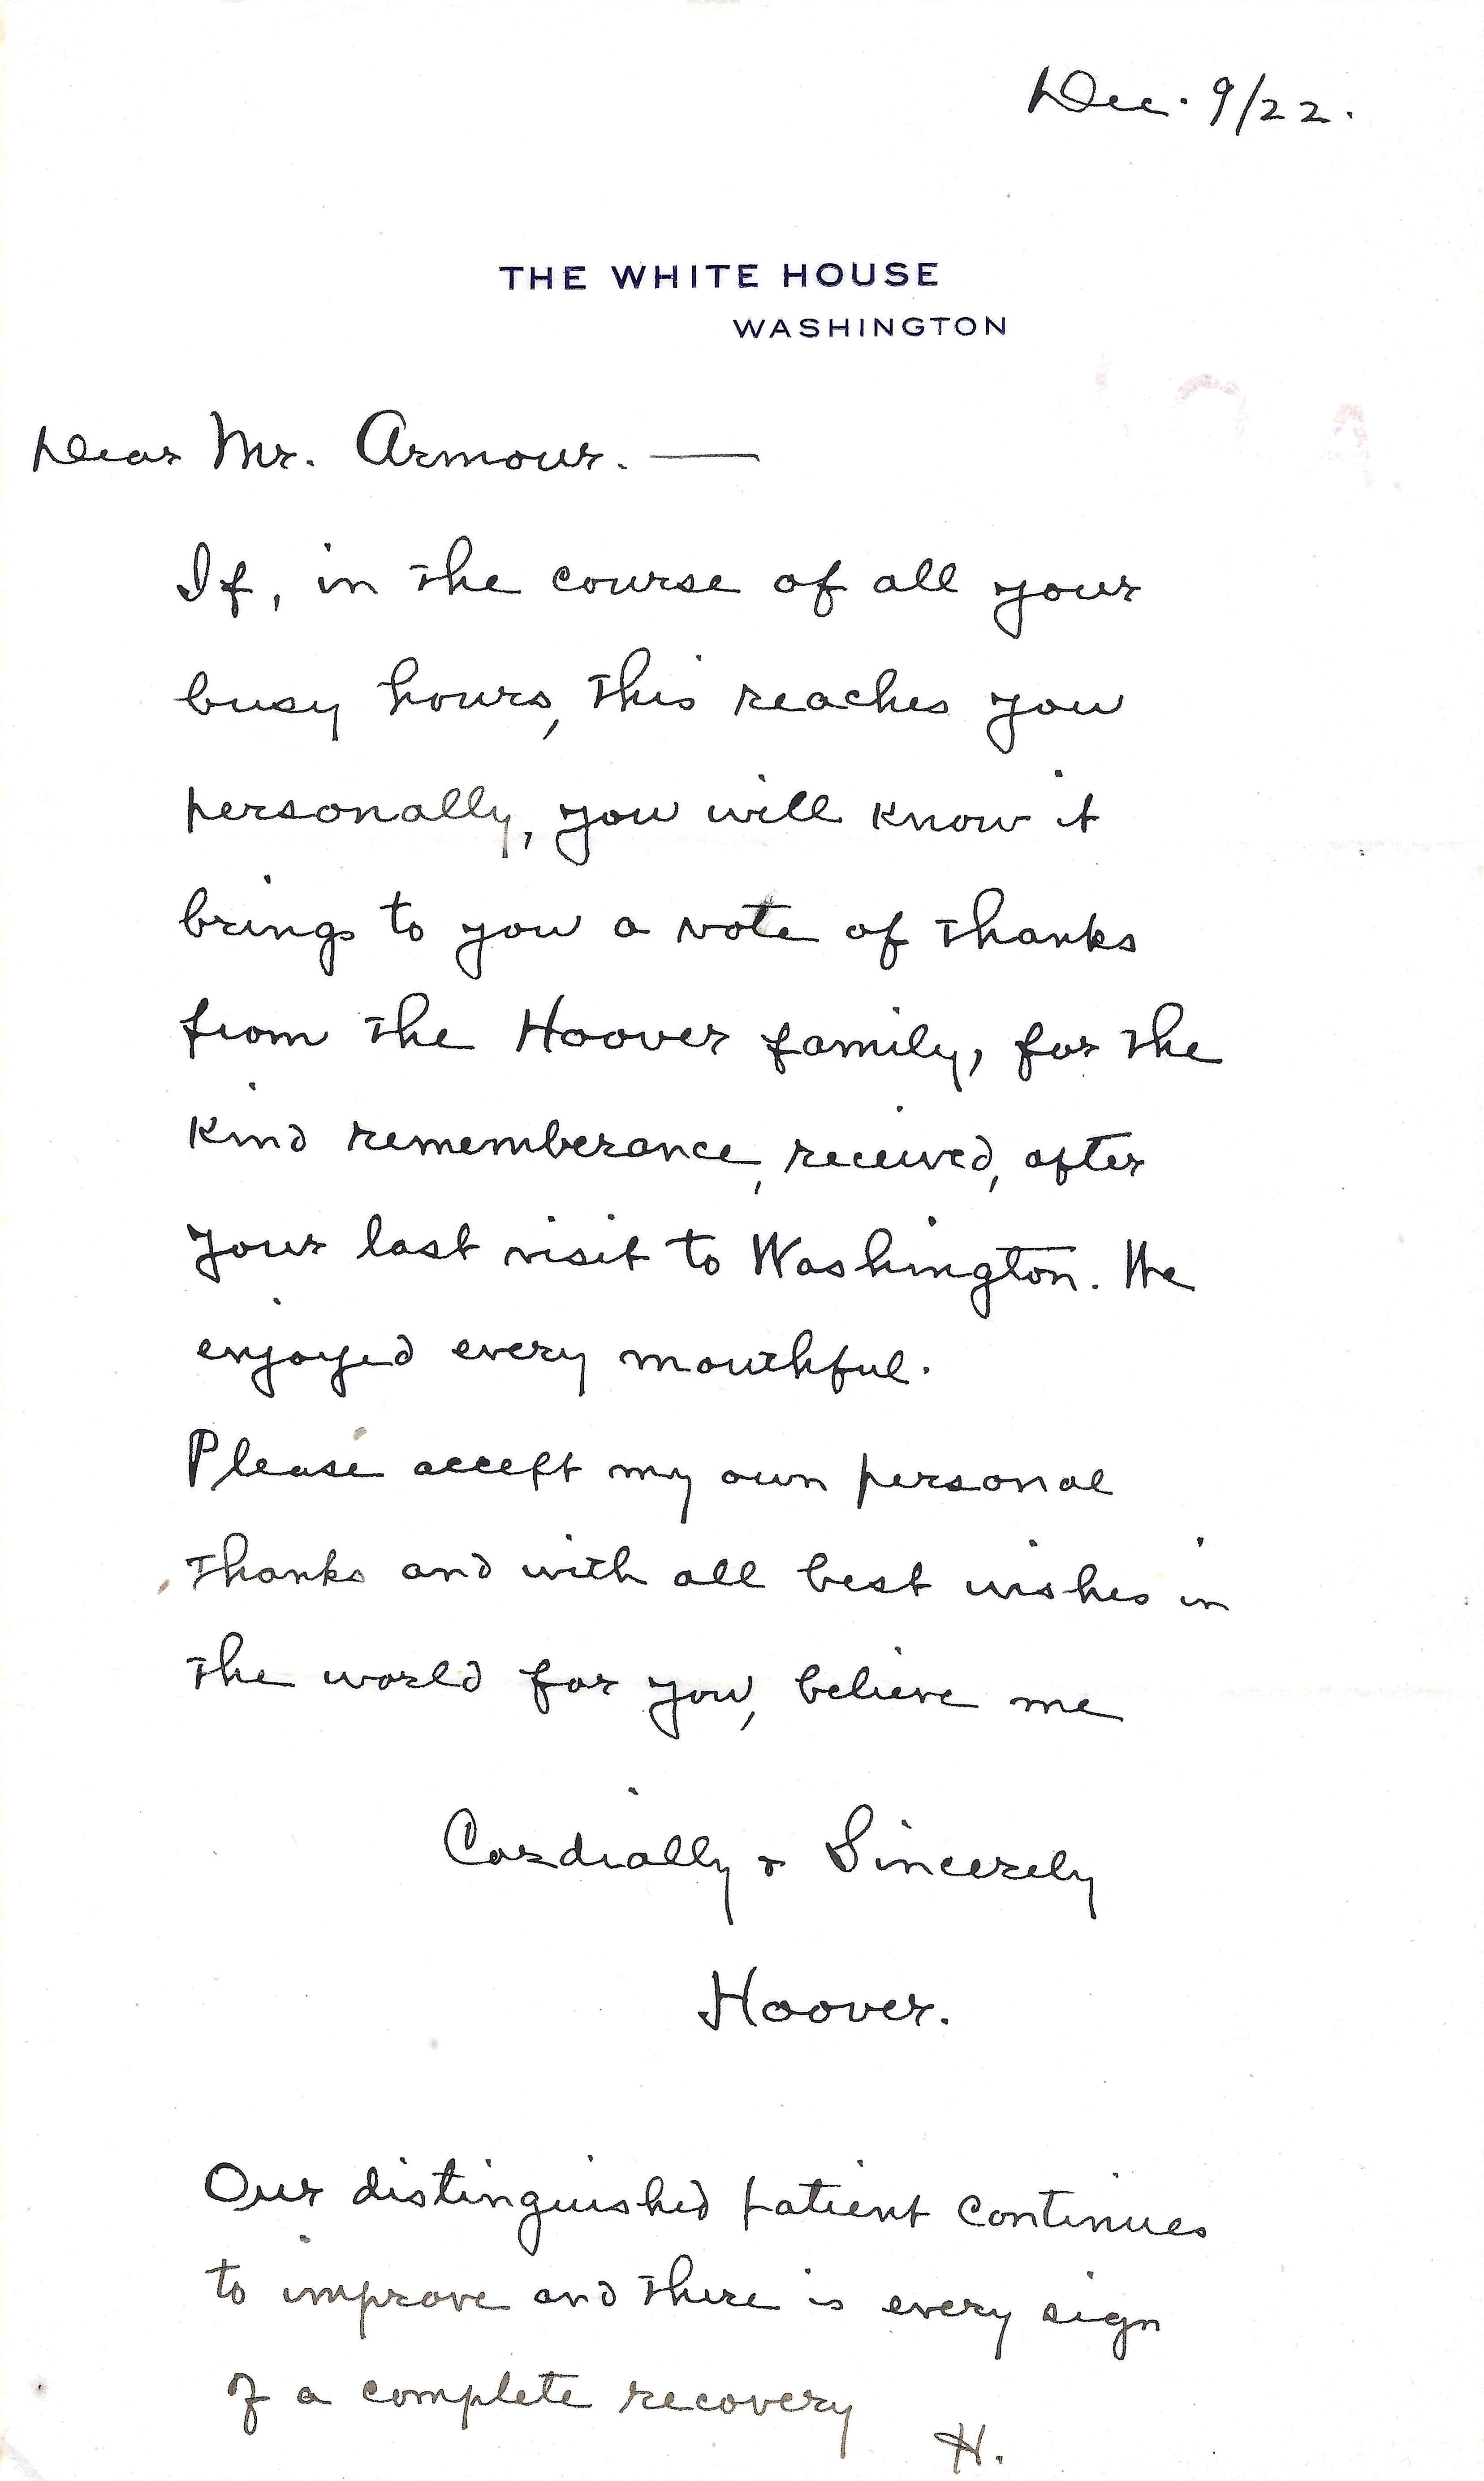 Dec. 9/22.
THE WHITE HOUSE
WASHINGTON
Dear Mr. Armour. —
If, in the course of all your
busy hours, this reaches you
personally, you will know it
brings to you a vote of thanks
from the Hoover family, for the
kind rememberance, received, after
your last visit to Washington. We
enjoyed every mouthful.
Please accept my own personal
thanks and with all best wishes in
the world for you, believe me
Cordially & Sincerely
Hoover.
Our distinguished patient continues
to improve and there is every sign
of a complete recovery
H.